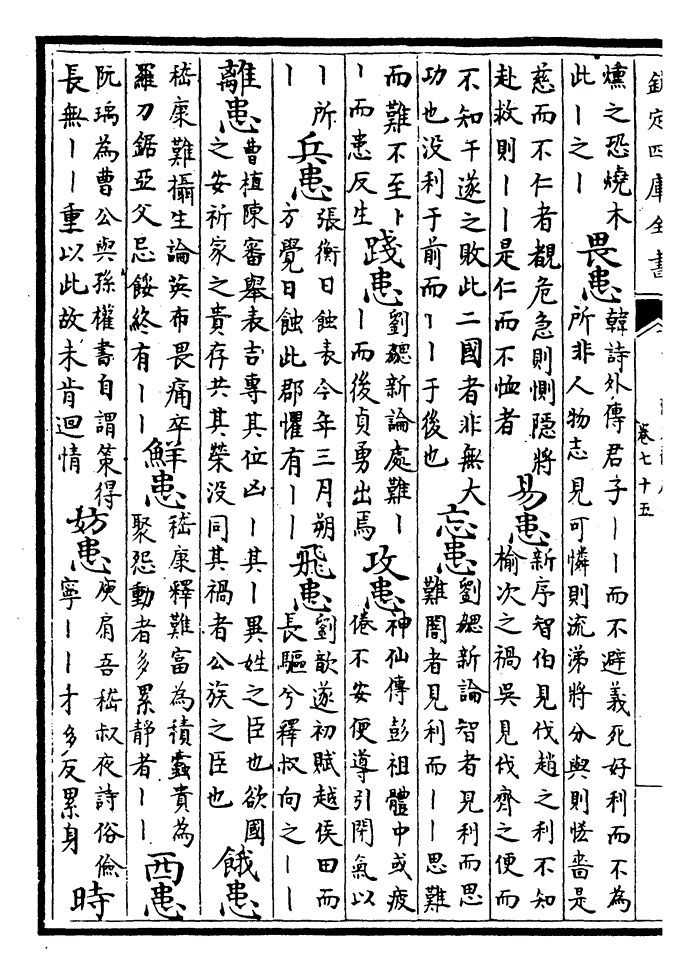 欽定四庫全書
卷七十五
燻之恐燒木
此丨之丨
畏患
韓詩外傳君子丨丨而不避義死好利而不為
所非人物志見可憐則流涕將分與則恡嗇是
慈而不仁者覩危急則惻隱將
赴救則丨丨是仁而不恤者
易患
新序智伯見伐趙之利不知
榆次之禍吳見伐齊之便而
不知干遂之敗此二國者非無大
功也没利于前而丨丨于後也
忘患
劉勰新論智者見利而思
難闇者見利而丨丨思難
而難不至丨
丨而患反生
踐患
劉勰新論處難丨
丨而後貞勇出焉
攻患
神仙傳彭祖體中或疲
倦不安便導引閉氣以
丨所
丨
兵患
張衡日蝕表今年三月朔
方覺日蝕此郡懼有丨丨
飛患
劉歆遂初賦越侯田而
長驅兮釋叔向之丨丨
離患
曹植陳審舉表吉專其位凶丨其丨異姓之臣也欲國
之安祈家之貴存共其榮没同其禍者公族之臣也
餓患
嵇康難攝生論英布畏痛卒
羅刀鋸亞父忌餒終有丨丨
鮮患
嵇康釋難富為積蠹貴為
聚怨動者多累静者丨丨
西患
阮瑀為曹公與孫權書自謂策得
長無丨丨重以此故未肯迴情
妨患
庾肩吾嵇叔夜詩俗儉
寧丨丨才多反累身
時